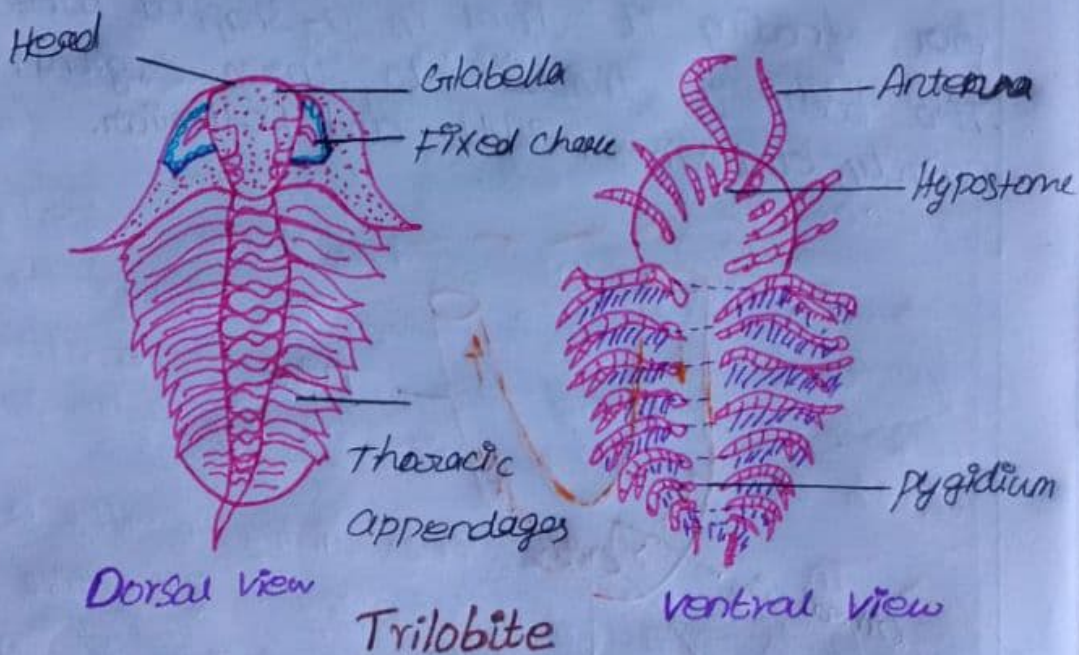 Head
Glabella
Fixed cheek
Antenna
Hypostome
Thoracic
appendages
pygidium
Dorsal view
ventral view
Trilobite